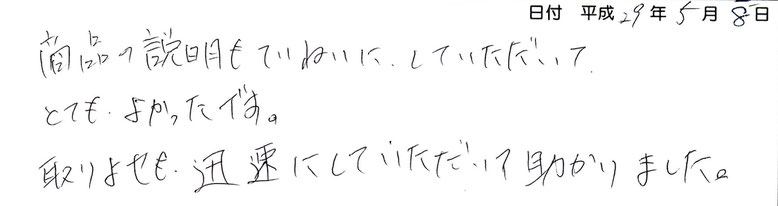 日付 平成29年5月8日
商品の説明もていねいに、していただいて
とても、よかったです。
取りよせも、迅速にしていただいて助かりました。